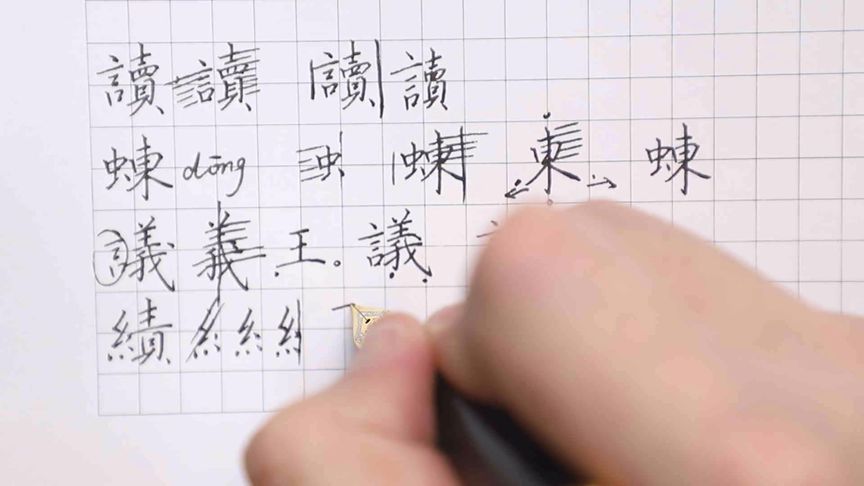 讀 讀 讀 讀
蝀 dōng 虫 蝀 東 蝀
議 義 王 議
績 糹 糹 糹